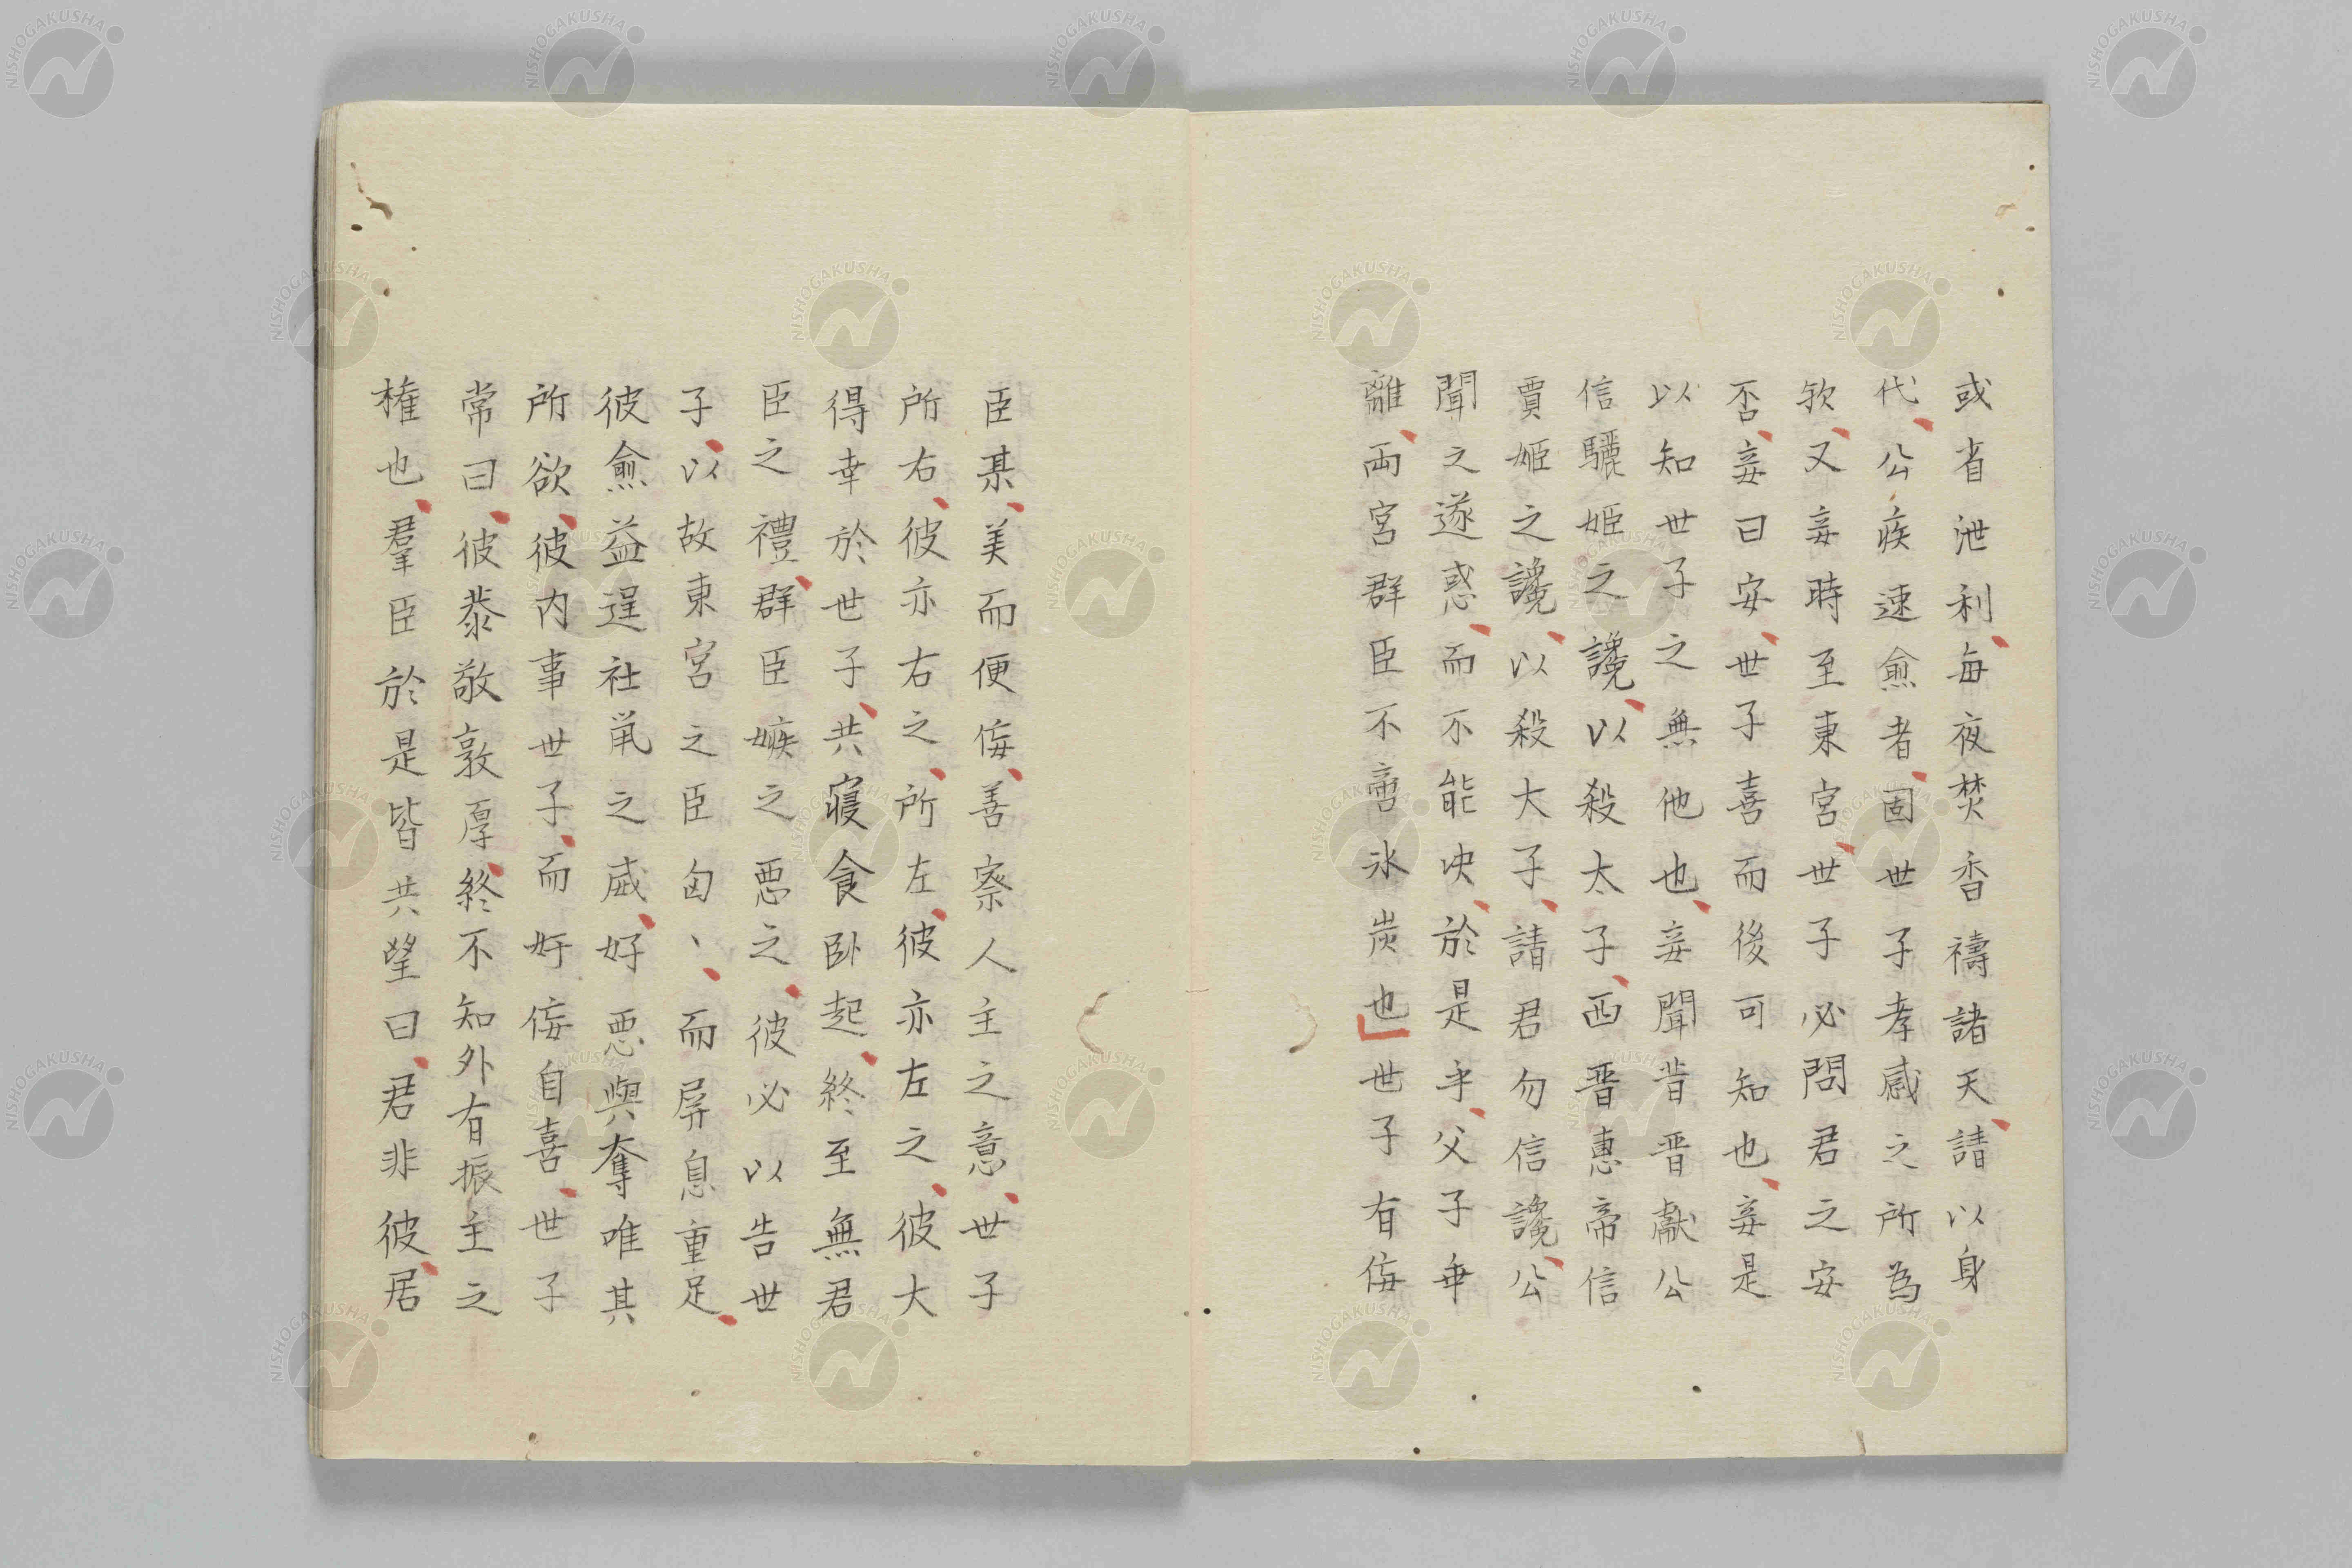 或者泄利、每夜焚香禱諸天、請以身
代、公疾速愈者、固世子孝感之所為
欤、又妾時至東宮、世子必問君之安
否、妾曰安、世子喜而後可知也、妾是
以知世子之無他也、妾聞昔晋獻公
信驪姫之讒、以殺太子、西晋惠帝信
賈姫之讒、以殺大子、請君勿信讒、公
聞之遂惑、而不能決、於是乎、父子乖
離、兩宮群臣不啻氷炭也」世子有侫
臣某、美而便侫、善察人主之意、世子
所右、彼亦右之、所左、彼亦左之、彼大
得幸於世子、共寢食卧起、終至無君
臣之禮、群臣嫉之悪之、彼必以告世
子、以故東宮之臣匈〻、而屏息重足、
彼愈益逞社鼠之威、好悪與奪唯其
所欲、彼内事世子、而奸侫自喜、世子
常曰、彼恭敬敦厚、終不知外有振主之
権也、羣臣於是皆共望曰、君非彼、居